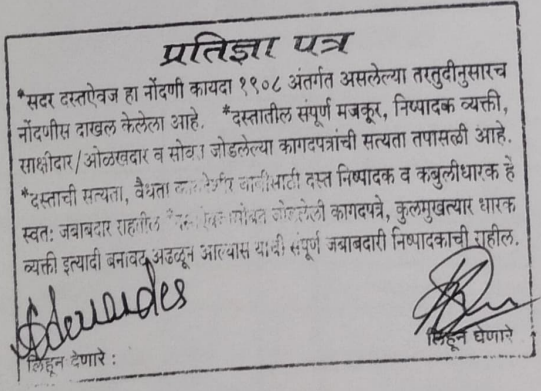 प्रतिज्ञा पत्र
*सदर दस्तऐवज हा नोंदणी कायदा १९०८ अंतर्गत असलेल्या तरतुदीनुसारच
नोंदणीस दाखल केलेला आहे. *दस्तातील संपूर्ण मजकूर, निष्पादक व्यक्ती,
साक्षीदार/ओळखदार व सोबत जोडलेल्या कागदपत्रांची सत्यता तपासली आहे.
*दस्ताची सत्यता, वैधता दस्त निष्पादक व कबुलीधारक हे
स्वतः जबाबदार राहतील जोडलेली कागदपत्रे, कुलमुखत्यार धारक
व्यक्ती इत्यादी बनावट अढळून आल्यास याची संपूर्ण जबाबदारी निष्पादकाची राहील.
लिहून देणारे :
लिहून घेणारे